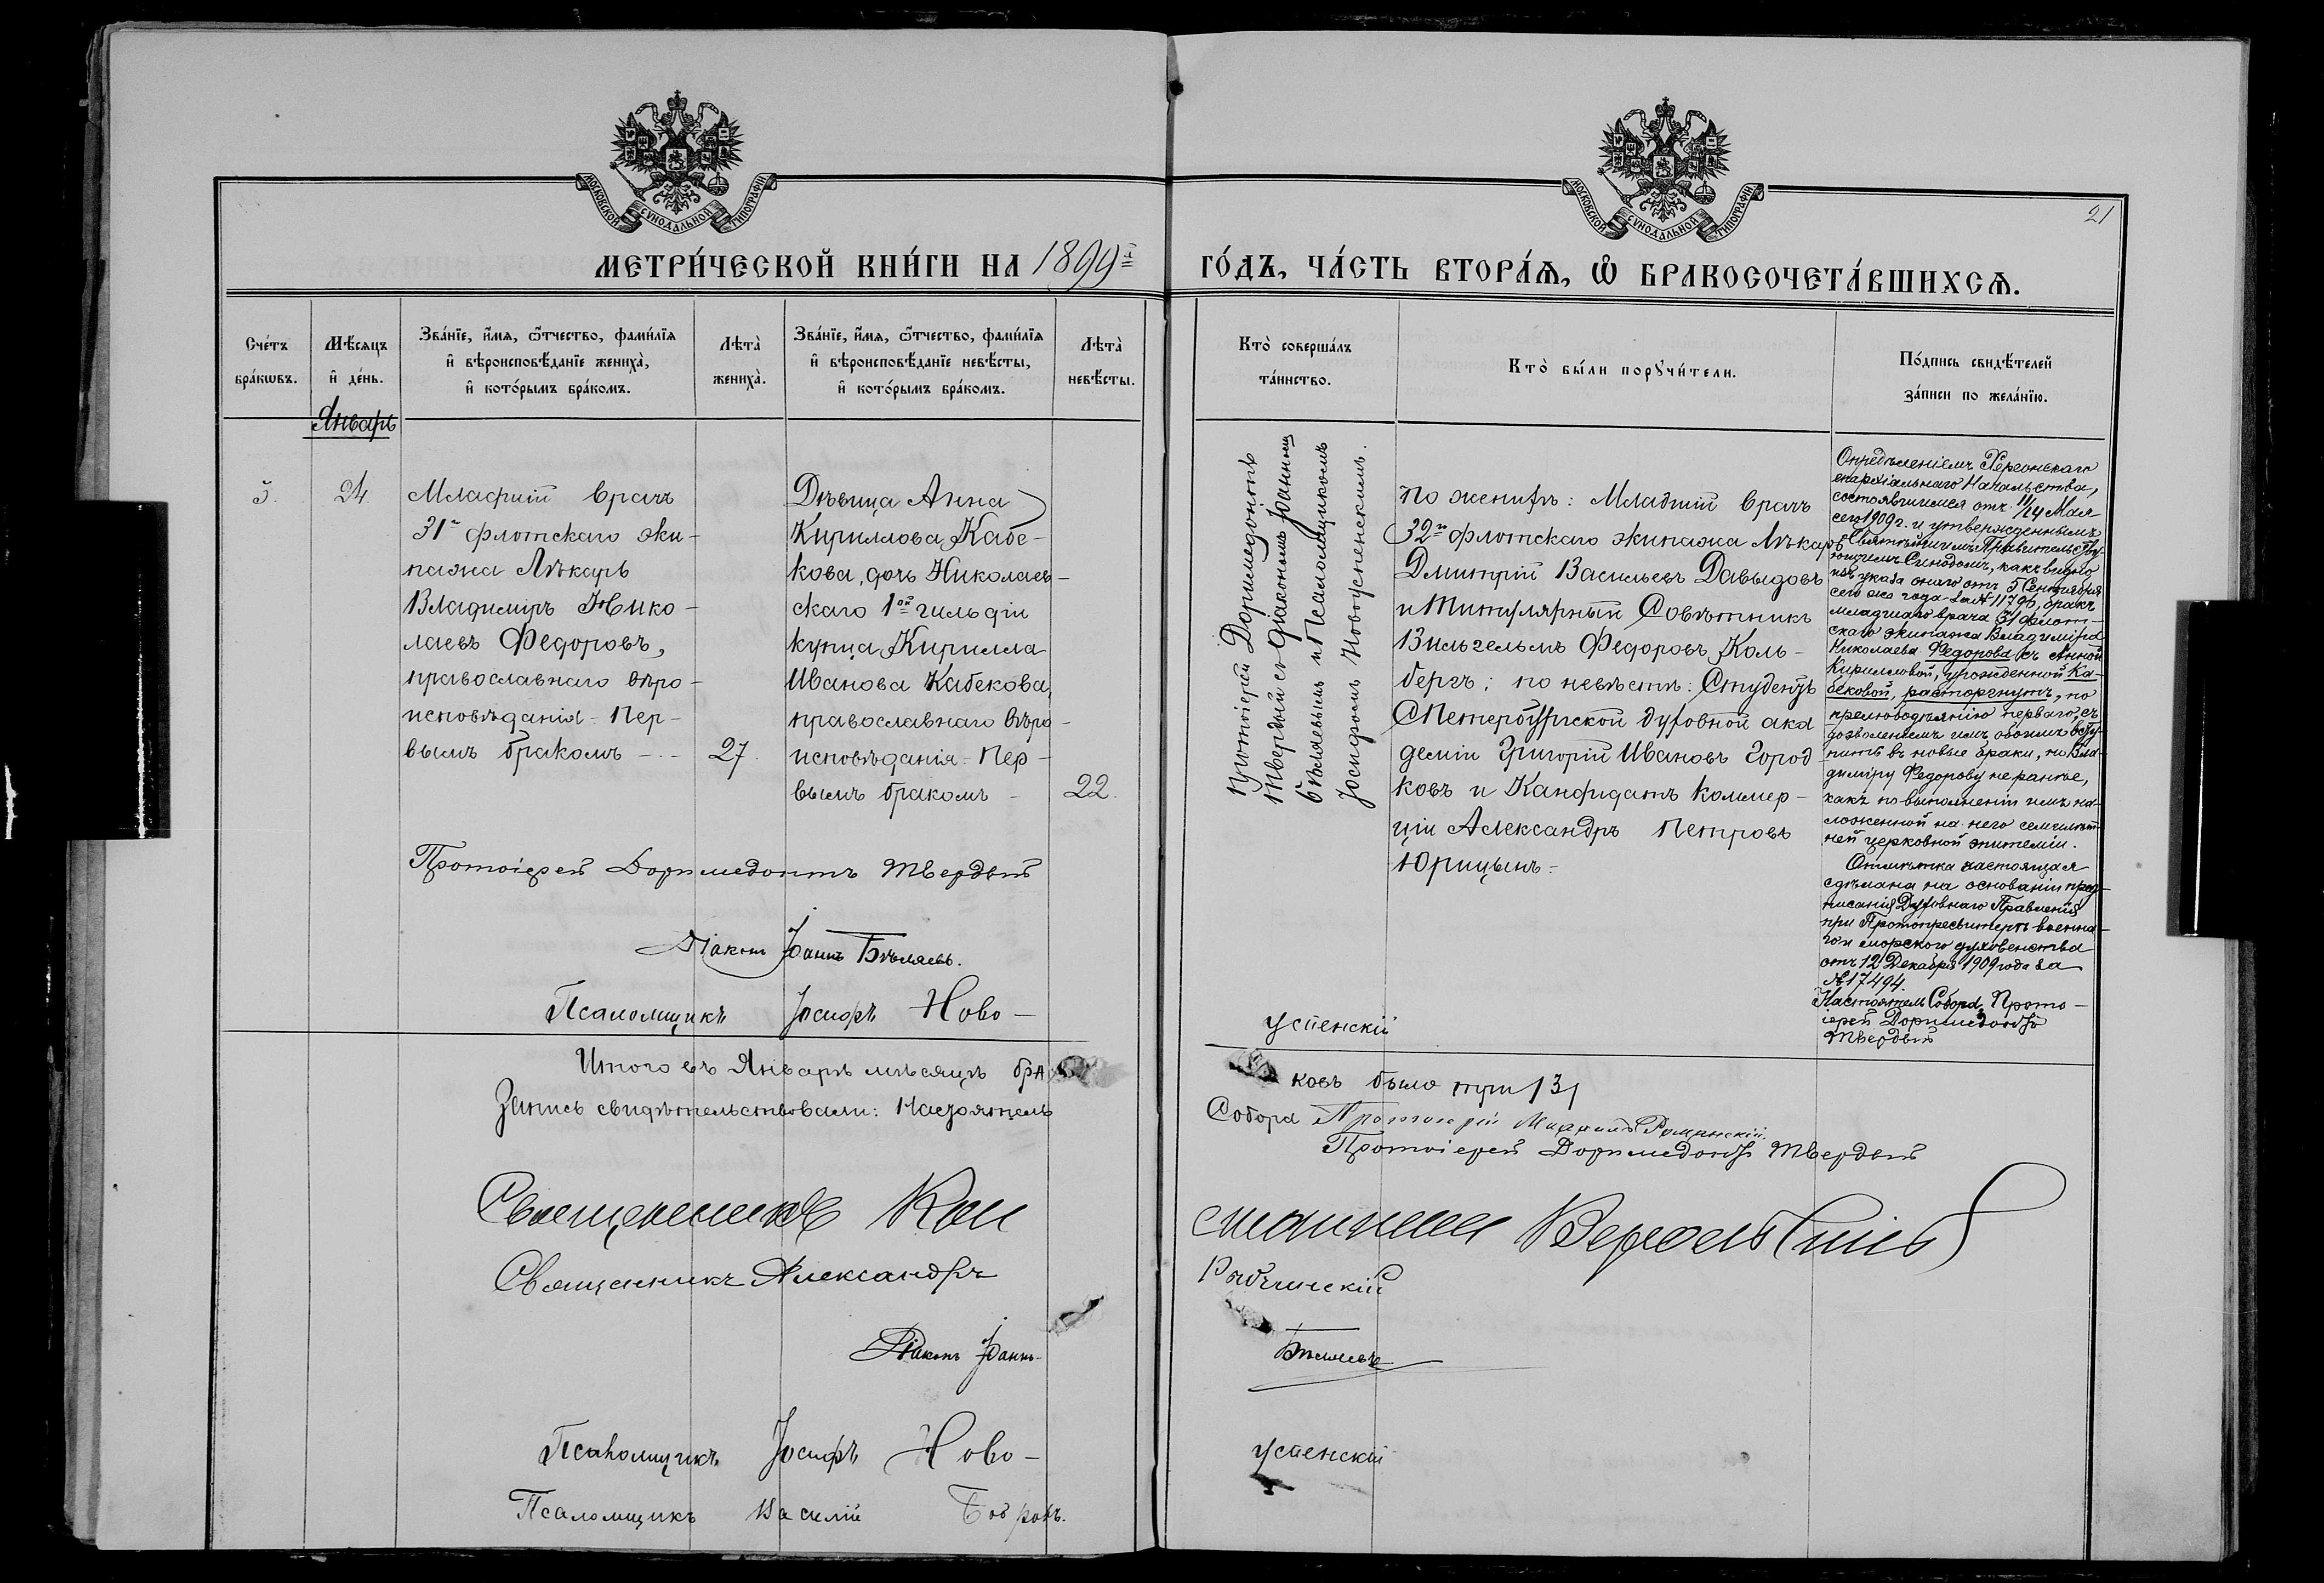 МОСКОВСКОЙ СѴНОДАЛЬНОЙ ТИПОГРАФІИ
МОСКОВСКОЙ СѴНОДАЛЬНОЙ ТИПОГРАФІИ
21
МЕТРИ́ЧЕСКОЙ КНИ́ГИ НА 1899й ГО́ДЪ, ЧА́СТЬ ВТОРА́Ѧ, Ѡ҆ БРАКОСОЧЕТА́ВШИХСѦ.
Сче́тъ
бра́кѡвъ.
Мѣ́сяцъ
и҆ де́нь.
Зва́нїе, и҆́мѧ, ѻ҆́тчество, фами́лїѧ
и҆ вѣроисповѣ́данїе жениха̀,
и҆ кото́рымъ бра́комъ.
Лѣта̀
жениха̀.
Зва́нїе, и҆́мѧ, ѻ҆́тчество, фами́лїѧ
и҆ вѣроисповѣ́данїе невѣ́сты,
и҆ кото́рымъ бра́комъ.
Лѣта̀
невѣ́сты.
Кто̀ соверша́лъ
та́инство.
Кто̀ бы́ли порꙋчи́тели.
По́дпись свидѣ́телей
за́писи по жела́нїю.
Январь
3.
24
Младшій врачъ
31го флотскаго эки-
пажа Лѣкарь
Владиміръ Нико-
лаевъ Федоровъ,
православнаго вѣро-
исповѣданія - Пер-
вымъ бракомъ -
27.
Дѣвица Анна
Кириллова Кабе-
кова, дочь Николаев-
скаго 1ой гильдіи
купца Кирилла
Иванова Кабекова,
православнаго вѣро-
исповѣданія - Пер-
вымъ бракомъ -
22.
Протоіерей Доримедонтъ
Твердый съ Діакономъ Іоанномъ
Бѣляевымъ и Псаломщикомъ
Іосифомъ Новоуспенскимъ.
По женихѣ: Младшій врачъ
32го флотскаго экипажа Лѣкарь
Дмитрій Васильевъ Давыдовъ
и Титулярный Совѣтникъ
Вильгельмъ Федоровъ Коль-
бергъ; по невѣстѣ: Студентъ
СПетербургской духовной ака
деміи Григорій Ивановъ Город-
ковъ и Кандидатъ коммер-
ціи Александръ Петровъ
Юрицынъ.
Опредѣленіемъ Херсонскаго
епархіальнаго Начальства,
состоявшимся отъ 11/14 Мая
сего 1909 г. и утвержденнымъ
Святѣйшимъ Правительству-
ющимъ Синодомъ, какъ видно
изъ указа онаго отъ 5 Сентября
сего же года за № 11796, бракъ
младшаго врача 31 флот-
скаго экипажа Владиміра
Николаева Федорова съ Анной
Кирилловой, урожденной Ка-
бековой, расторгнутъ, по
прелюбодѣянію перваго, съ
дозволеніемъ имъ обоимъ всту-
пить въ новые браки, но Вла-
диміру Федорову не ранѣе,
какъ по выполненіи имъ на-
ложенной на него семилѣт-
ней церковной эпитеміи.
Отмѣтка настоящая
сдѣлана на основаніи пред-
писанія Духовнаго Правленія
при Протопресвитерѣ военна-
го и морского духовенства
отъ 12 Декабря 1909 года за
№ 17494.
Настоятель Собора, Прото-
іерей Доримедонтъ
Твердый
Протоіерей Доримедонтъ Твердый
Діаконъ Іоаннъ Бѣляевъ.
Псаломщикъ Іосифъ Ново- успенскій
Итого въ Январѣ мѣсяцѣ бра ковъ было три /3/
Запись свидѣтельствовали: Настоятель Собора Протоіерей Михаилъ Романскій
Протоіерей Доримедонтъ Твердый
Священникъ Кон
Священникъ Александръ
Діаконъ Іоаннъ Бѣляевъ
Псаломщикъ Іосифъ Ново- успенскій
Псаломщикъ Василій Бобровъ.